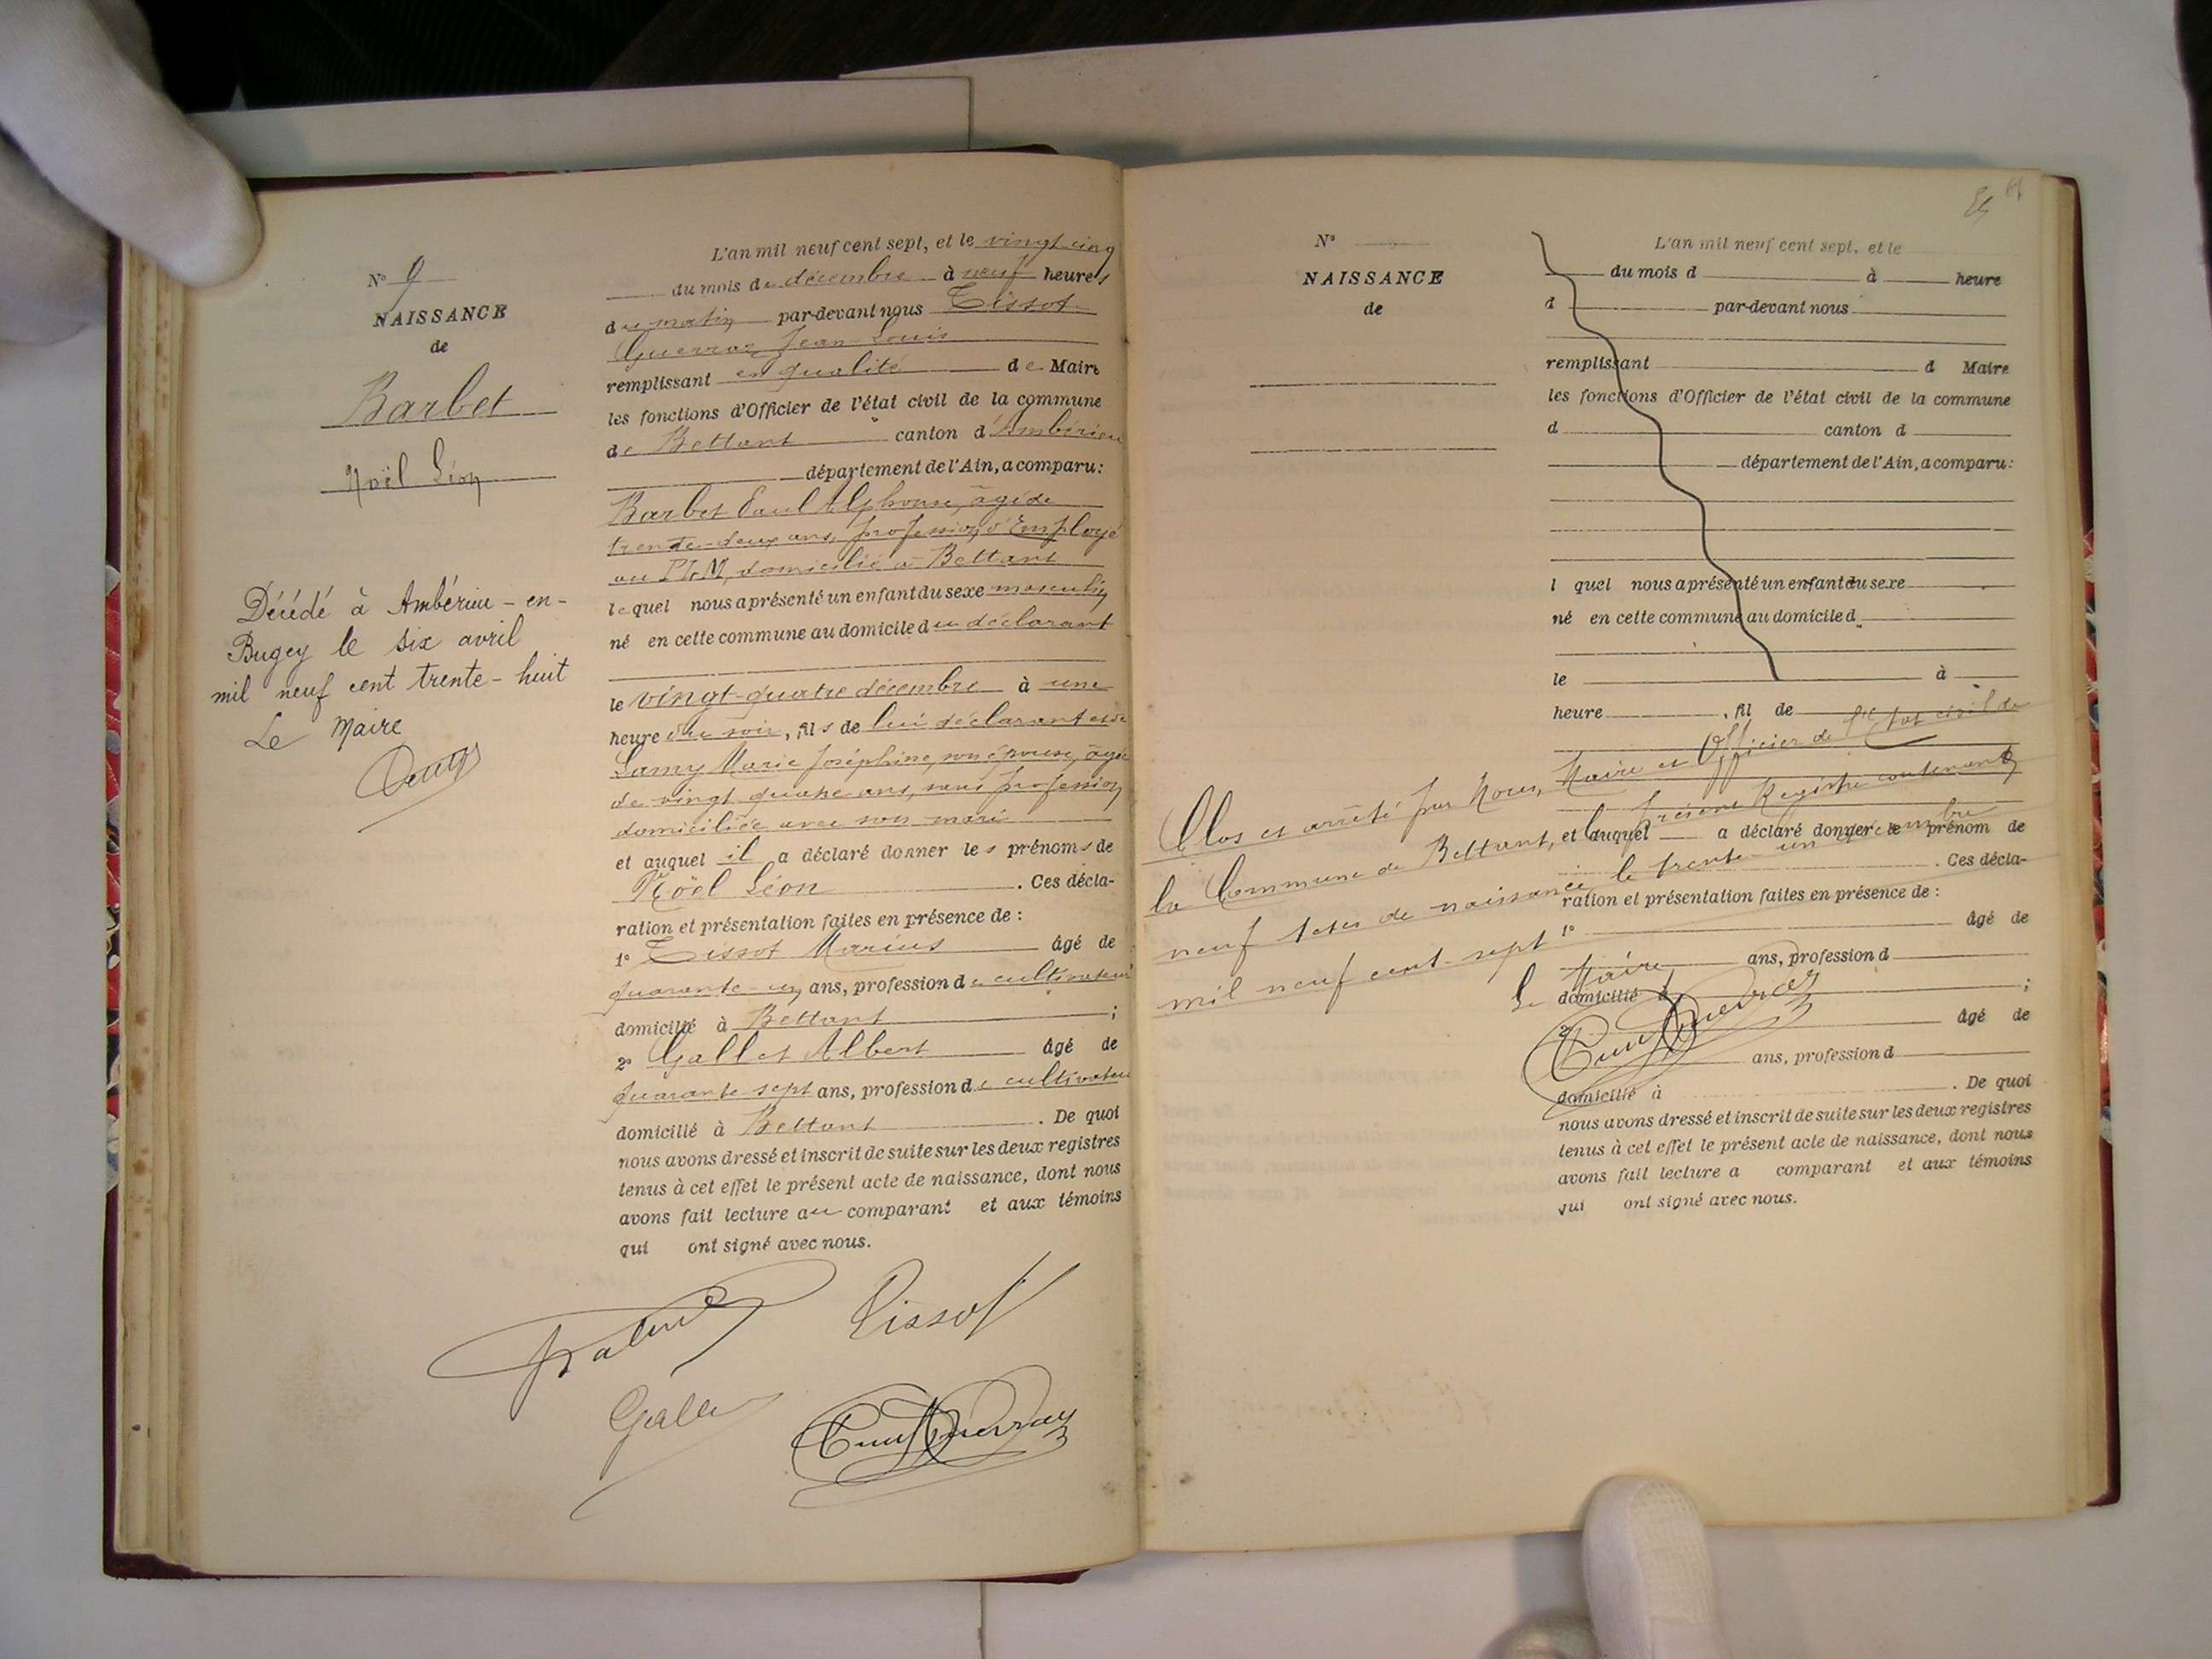 N° 9
NAISSANCE
de
Barbet
Noël Léon
Décédé à Ambérieu-en-
Bugey le six avril
mil neuf cent trente-huit
Le Maire
L'an mil neuf cent sept, et le vingt cinq
du mois de décembre à neuf heures
du matin par-devant nous Tissot
Guerraz Jean Louis
remplissant en qualité de Maire
les fonctions d'Officier de l'état civil de la commune
de Bettant canton d'Ambérieu
département de l'Ain, a comparu:
Barbet Paul Alphonse, âgé de
trente-deux ans, profession d'Employé
au PLM, domicilié à Bettant
lequel nous a présenté un enfant du sexe masculin
né en cette commune au domicile du déclarant
le vingt-quatre décembre à une
heure du soir, fils de lui déclarant et de
Lamy Marie Joséphine, son épouse, âgée
de vingt quatre ans, sans profession
domiciliée avec son mari
et auquel il a déclaré donner les prénoms de
Noël Léon . Ces décla-
ration et présentation faites en présence de :
1° Tissot Marius âgé de
quarante-un ans, profession de cultivateur
domicilié à Bettant ;
2° Gallet Albert âgé de
quarante sept ans, profession de cultivateur
domicilié à Bettant . De quoi
nous avons dressé et inscrit de suite sur les deux registres
tenus à cet effet le présent acte de naissance, dont nous
avons fait lecture au comparant et aux témoins
qui ont signé avec nous.
Tissot
N°
NAISSANCE
de
L'an mil neuf cent sept, et le
du mois d à heure
d par-devant nous
remplissant d Maire
les fonctions d'Officier de l'état civil de la commune
d canton d
département de l'Ain, a comparu:
l quel nous a présenté un enfant du sexe
né en cette commune au domicile d
le à
heure , fil de
Clos et arrêté par Nous, Maire et Officier de l'Etat civil de
la Commune de Bettant, le présent Registre contenant
neuf actes de naissance le trente-un décembre
mil neuf cent-sept
Le Maire
et auquel a déclaré donner le prénom de
. Ces décla-
ration et présentation faites en présence de :
1° âgé de
ans, profession d
domicilié à ;
2° âgé de
ans, profession d
domicilié à . De quoi
nous avons dressé et inscrit de suite sur les deux registres
tenus à cet effet le présent acte de naissance, dont nous
avons fait lecture a comparant et aux témoins
qui ont signé avec nous.